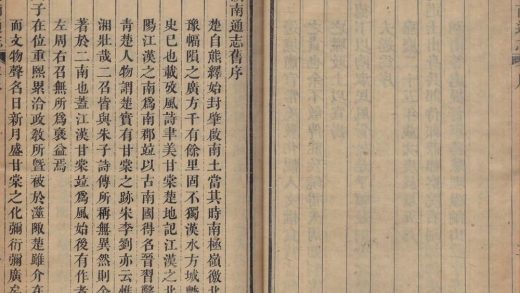 南通志舊序
楚自熊繹始封肇啟南土當其時南極嶺徼北
豫幅隕之廣方千有餘里固不獨漢水方城
史巳也載攷風詩聿美甘棠楚地記江漢之北
陽江漢之南爲南郡竝以古南國得名晉習鑿
青楚人物謂楚實有甘棠之跡朱李劉亦云惟
湘壯哉二召皆與朱子詩傳所稱無異然則分
著於二南也蓋江漢甘棠竝爲風始後有作者
左周右召無所爲襃益焉
子在位重熙累洽政敎所曁被於陬楚雖介在
而文物聲名日新月盛甘棠之化彌衍彌廣矣